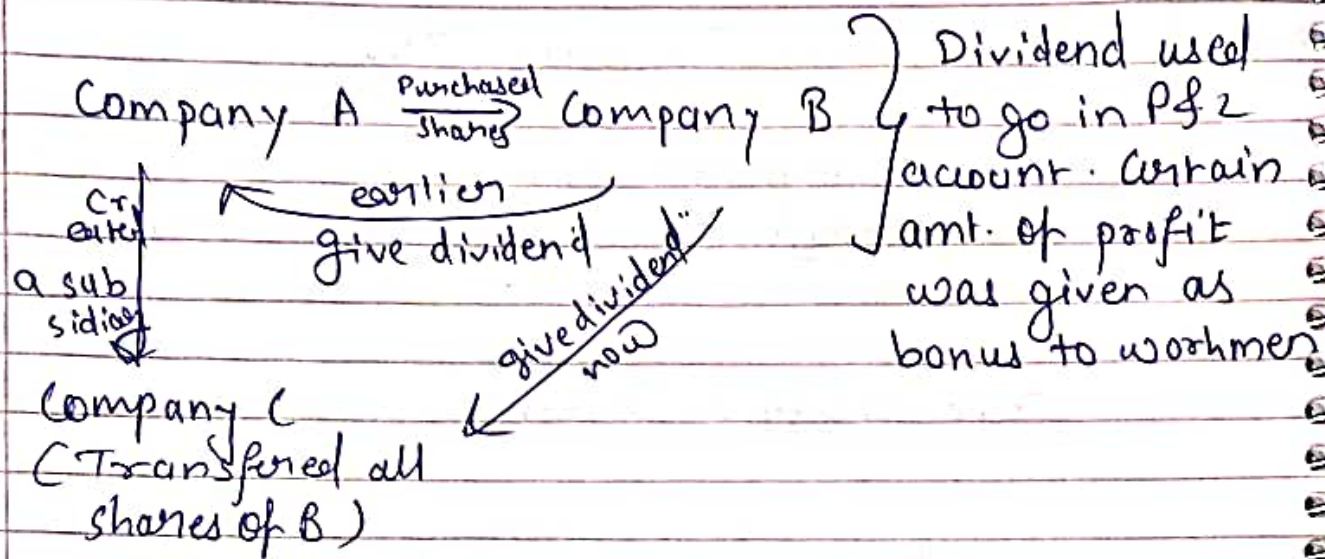 Company A Purchased shares Company B
earlier
give dividend
give dividend now
Create
a sub
sidiary
Company C
(Transfered all
shares of B)
Dividend used
to go in P&L
account. Certain
amt. of profit
was given as
bonus to workmen